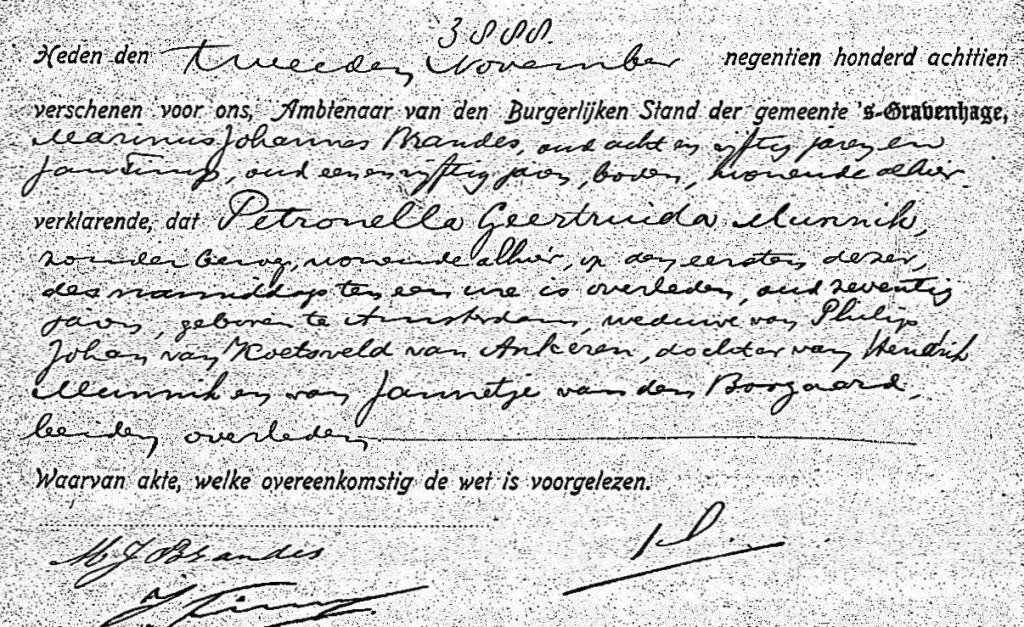 3888.
Heden den tweeden November negentien honderd achttien
verschenen voor ons, Ambtenaar van den Burgerlijken Stand der gemeente 's-Gravenhage,
Marinus Johannes Brandes, oud acht en vijftig jaren en
Jan Timp, oud een en vijftig jaren, boden, wonende alhier
verklarende, dat Petronella Geertruida Munnik,
zonder beroep, wonende alhier, op den eersten dezer,
des namiddags ten een ure is overleden, oud zeventig
jaren, geboren te Amsterdam, weduwe van Philip
Johan van Koetsveld van Ankeren, dochter van Hendrik
Munnik en van Jannetje van den Boogaard,
beiden overleden
Waarvan akte, welke overeenkomstig de wet is voorgelezen.
M J Brandes